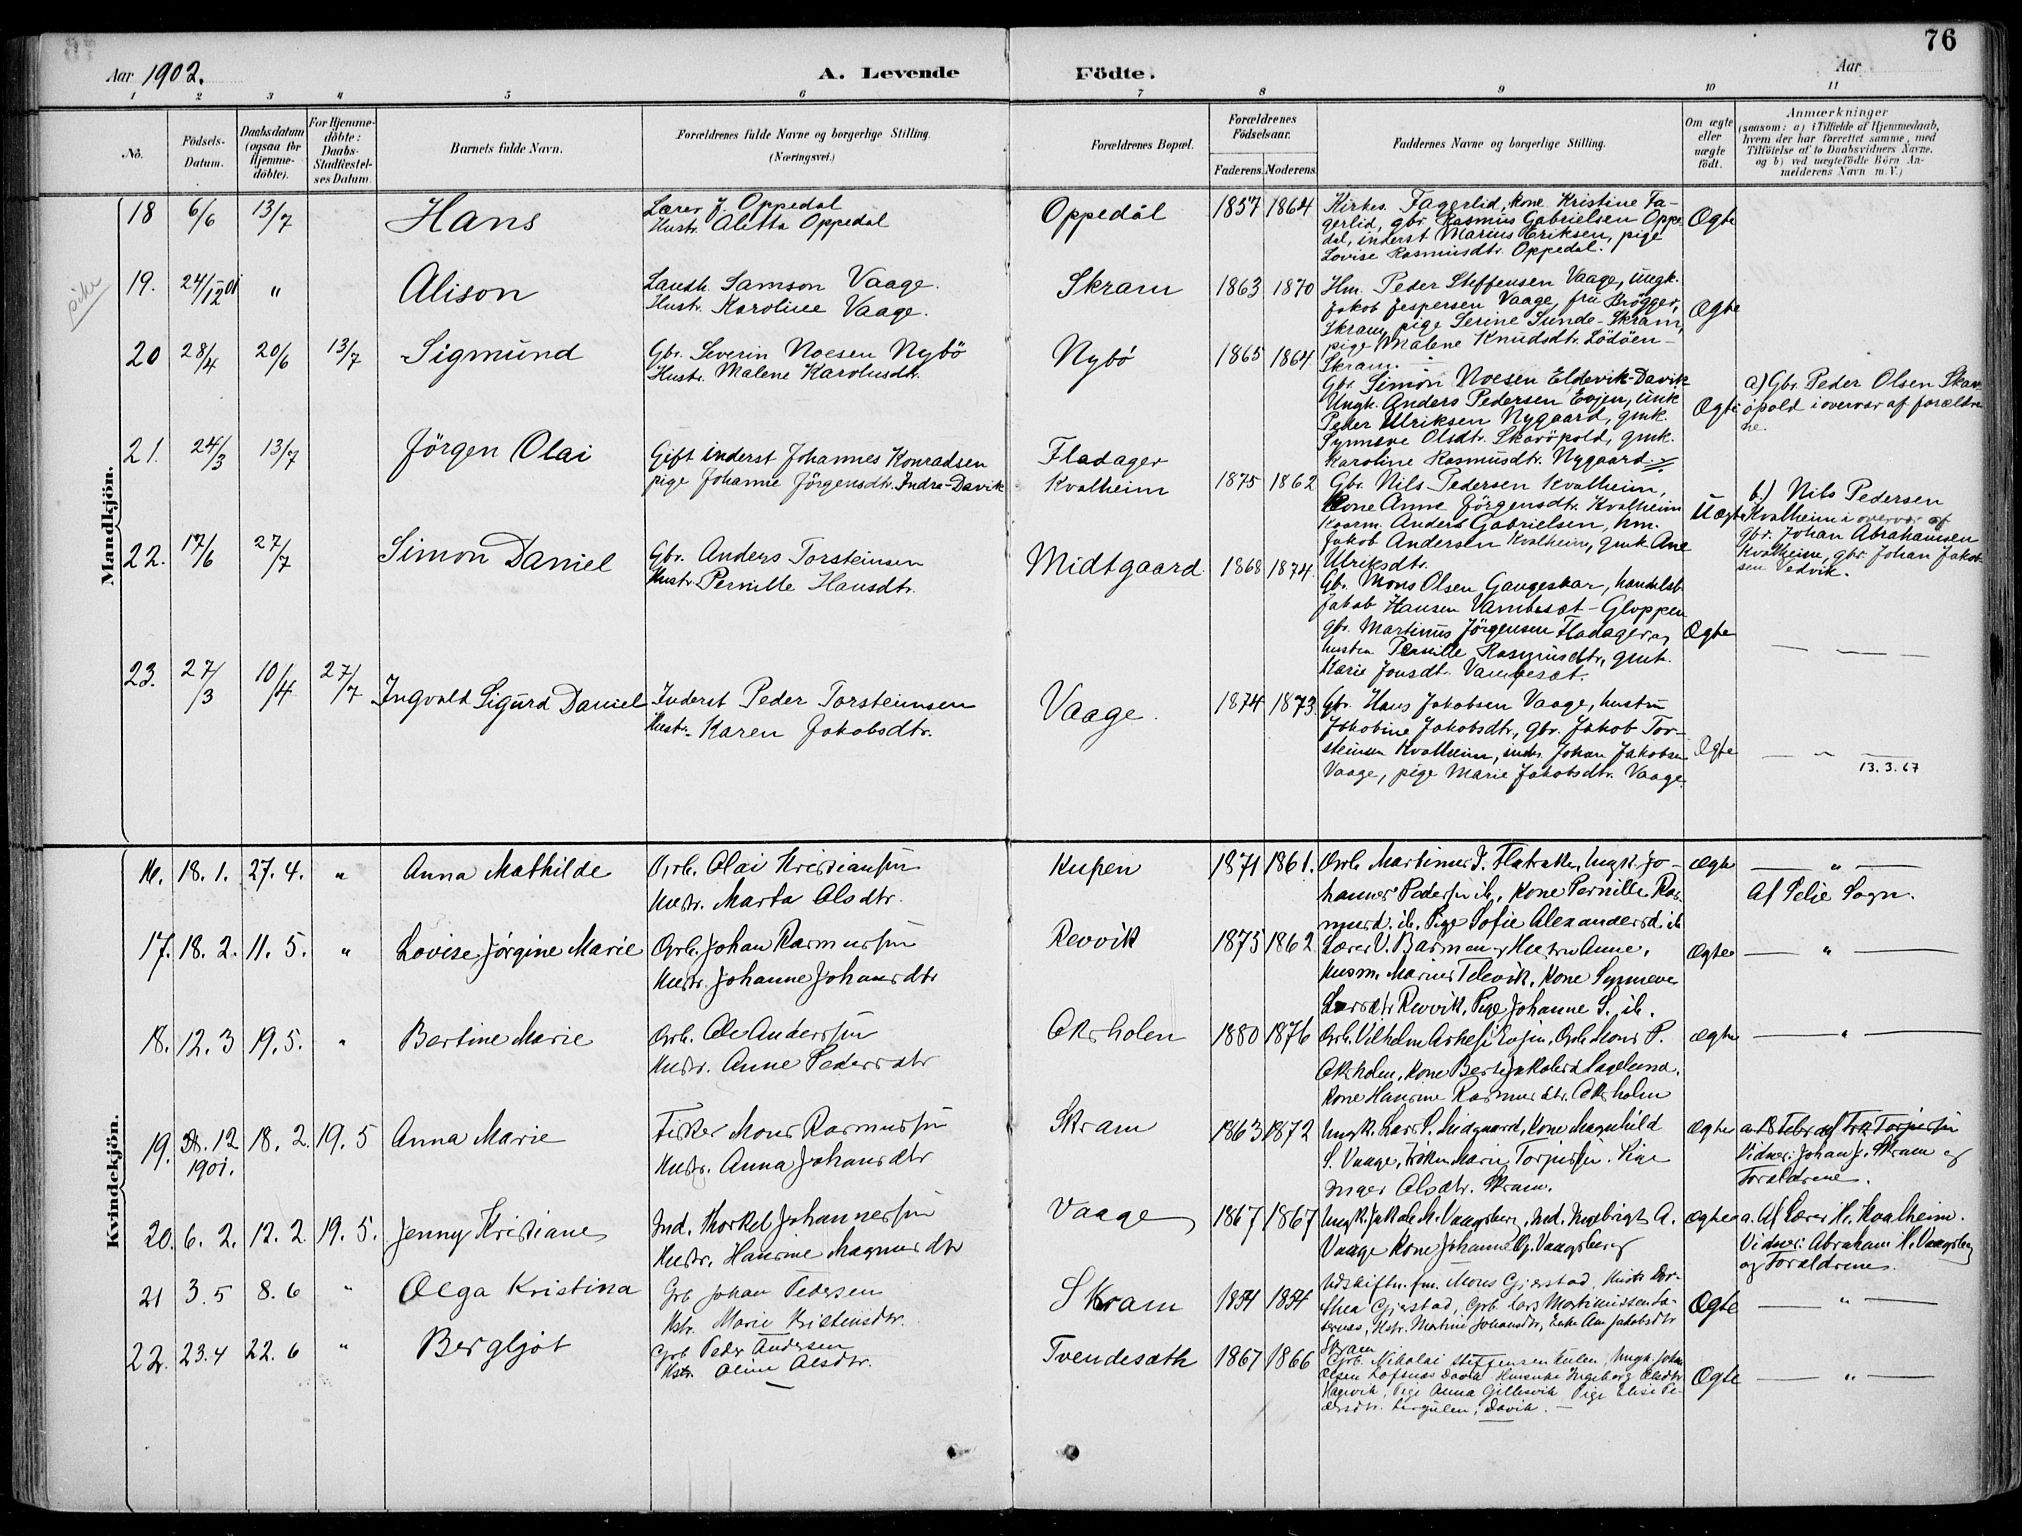 76
Aar 1902.
A. Levende Födte.
Aar
1 2 3 4 5 6 7 8 9 10 11
No.
Födsels-Datum.
Daabsdatum (ogsaa for Hjemme-döbte).
For Hjemme-döbte: Daabs-Stadfæstel-ses Datum.
Barnets fulde Navn.
Forældrenes fulde Navne og borgerlige Stilling. (Næringsvei.)
Forældrenes Bopæl.
Forældrenes Födselsaar.
Faderens. Moderens.
Faddernes Navne og borgerlige Stilling.
Om ægte eller uægte födt.
Anmærkninger (saasom: a) i Tilfælde af Hjemmedaab, hvem der har forrettet samme, med Tilföielse af to Daabsvidners Navne. og b) ved uægtefödte Börn An-melderens Navn m.V.)
Mandkjön.
18 6/6 13/7 Hans
Lærer J. Oppedal
Hustr. Aletta Oppedal
Oppedal 1857 1864
Kirkes. Fagerlid, kone Kristine Fa-
gerlid, gbr. Rasmus Gabrielsen Oppe-
dal, inderst Marius Eriksen, pige
Lovise Rasmusdtr. Oppedal.
Ægte
19. 24/12 01 " Alison
Landh. Samson Vaage.
Hustr. Karoline Vaage.
Skram 1863 1870
Hm. Peder Steffensen Vaage, ungk.
Jakob Jespersen Vaage, frü Brögger,
Skram, pige Serine Sunde-Skram,
pige Malene Knudsdtr. Lödöen-
Skram.
Ægte
20 28/4 20/6 13/7 Sigmund
Gbr. Severin Noesen Nybö
Hustr. Malene Karolusdtr.
Nybö 1865 1864
Gbr. Simon Noesen Eldevik-Davik
Ungk. Anders Pedersen Evjen, unk
Peder Ulriksen Nygaard, gmk.
Synneve Olsdtr. Skaröpold, gmk.
Karoline Rasmusdtr. Nygaard
Ægte
a) Gbr. Peder Olsen Skar-
öpold i overvær af forældre-
ne.
21. 24/3 13/7 Jörgen Olai
Gift inderst Johannes Konradsen
pige Johanne Jörgensdtr. Indre-Davik
Fladager
Kvalheim 1875 1862
Gbr. Nils Pedersen Kvalheim,
Kone Anne Jörgensdtr. Kvalheim
Kaarm. Anders Gabrielsen, hm.
Jakob Andersen Kvalheim, gmk Ane
Ulriksdtr.
Uægte
b.) Nils Pedersen
Kvalheim i overvær af
gbr. Johan Abrahamsen
Kvalheim, gbr. Johan Jakob-
sen Vedvik.
22. 17/6 27/7 Simon Daniel
Gbr. Anders Torsteinsen
Hustr. Pernille Hansdtr.
Midtgaard 1868 1874
Gbr. Mons Olsen Gangeskar, handelsb
Jakob Hansen Vambesæt-Gloppen
gbr. Martinus Jörgensen Fladager og
hustru Pernille Rasmusdtr, gmk.
Karie Jonsdt. Vambesæt.
Ægte
23. 27/3 10/4 27/7 Ingvald Sigurd Daniel
Inderst Peder Torsteinsen
Hustr. Karen Jakobsdtr.
Vaage. 1874 1873
Gbr. Hans Jakobsen Vaage, hustru
Jakobine Jakobsdtr, gbr. Jakob Tor-
steinsen Kvalheim, inder. Johan Jakobsen
Vaage, pige Marie Jakobsdtr. Vaage.
Ægte
"
13.3.67
Kvindekjön.
16. 18.1. 27.4. " Anna Mathilde
Grb. Olai Kristiansen
Hustr. Marta Olsdtr.
Kupen 1871 1861.
Grb. Martinus J. Flatraker, Ungk. Jo-
hannes Pedersen ib, Kone Pernille Ras-
musd. ib, Pige Sofie Alexandersd. ib
ægte
"
Af Selje Sogn.
17. 18.2. 11.5. " Lovise Jörgine Marie
Grb. Johan Rasmussen
Hustr. Johanne Johansdtr
Revvik 1875 1862
Lærer V. Barman og Hustru Anne,
Husm. Marius Televik, Kone Synneve
Larsdtr Revvik, Pige Johanne S. ib.
ægte
"
18. 12.3 19.5. " Bertine Marie
Grb. Ole Anderssen
Hustr. Anne Pedersdtr
Oksholen 1880 1876
Grb. Vilhelm Evjen, Grb. Mons P.
Oksholen, Kone
Kone Hansine Rasmusdtr. Oksholen
ægte
"
19. 12 1901. 18.2. 19.5 Anna Marie
Fisker Mons Rasmussen
Hustr. Anna Johansdtr
Skram 1863 1872
Ungk. Lars S. Midgaard, Kone Magnhild
S. Vaage, Fisker Marius Torjussen. Pige
Inger Olsdtr. Skram.
ægte
Vidner: Johan J. Skram og
Forældrene.
20. 6.2. 12.2. 19.5. Jenny Kristiane
Ind. Thorkel Johannessen
Hustr. Hansine Magnusdtr
Vaage 1867 1867
Ungk. Jakob M. Vaagsberg, Ind. Ingebrigt A.
Vaage Kone Johanne Vaagsberg
ægte
a. Af Lærer H. Kvalheim.
Vidner: Abraham H. Vaagsberg
og Forældrene.
21 3.5 8.6 " Olga Kristina
Grb Johan Pedersen
Hstr. Marie Kristensdtr.
Skram 1854 1854
Udskiftn.fm. Mons Gjerstad, Hustr Dor-
thea Gjerstad, Grb Lars Martinussen
Hstr. Martine Johansdtr, Enke Ane Jakobsdtr
Skram
Ægte
"
22. 23.4 22.6 " Bergljot
Grb Peder Andersen
Hstr. Oline Olsdtr.
Tvendesæth 1867 1866
Grb. Nikolai Steffensen Ungk. Johan
Olsen Davik Ingeborg Olsdtr
Pige Anna Gillesvik Pige Elise Pe-
dersdtr. Davik.
Ægte
"